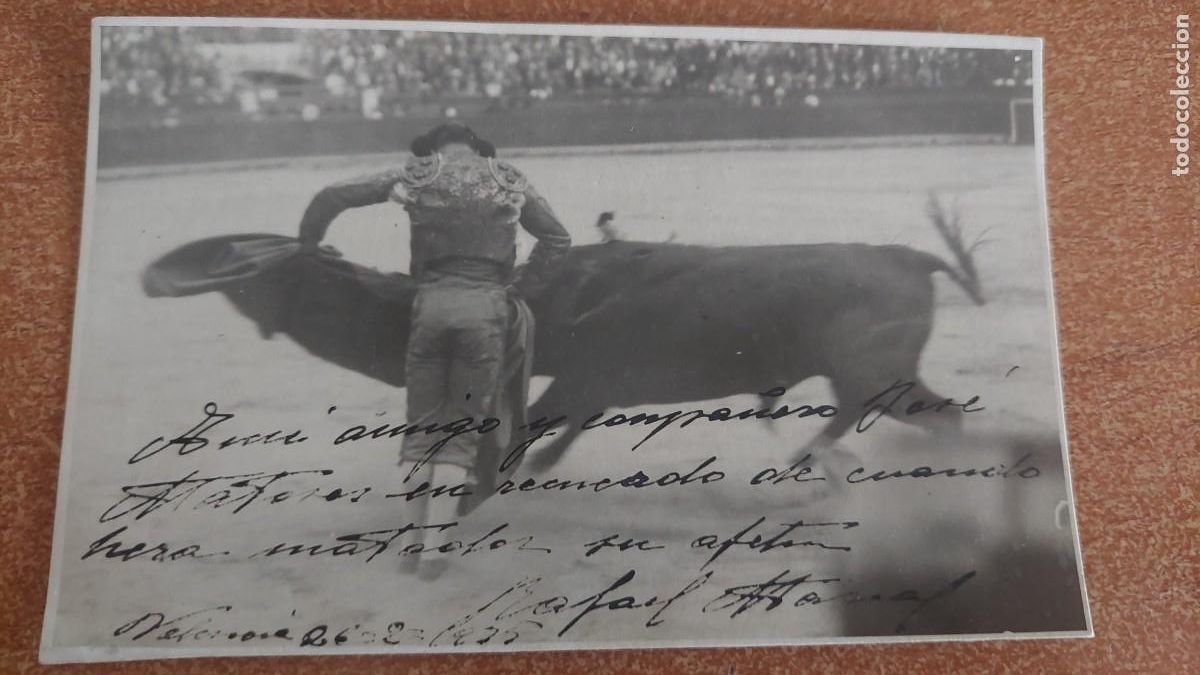 A mi amigo y compañero José
en recuerdo de cuando
hera matador su afetmo
Rafael
Valencia 26-2-1935
todocoleccion